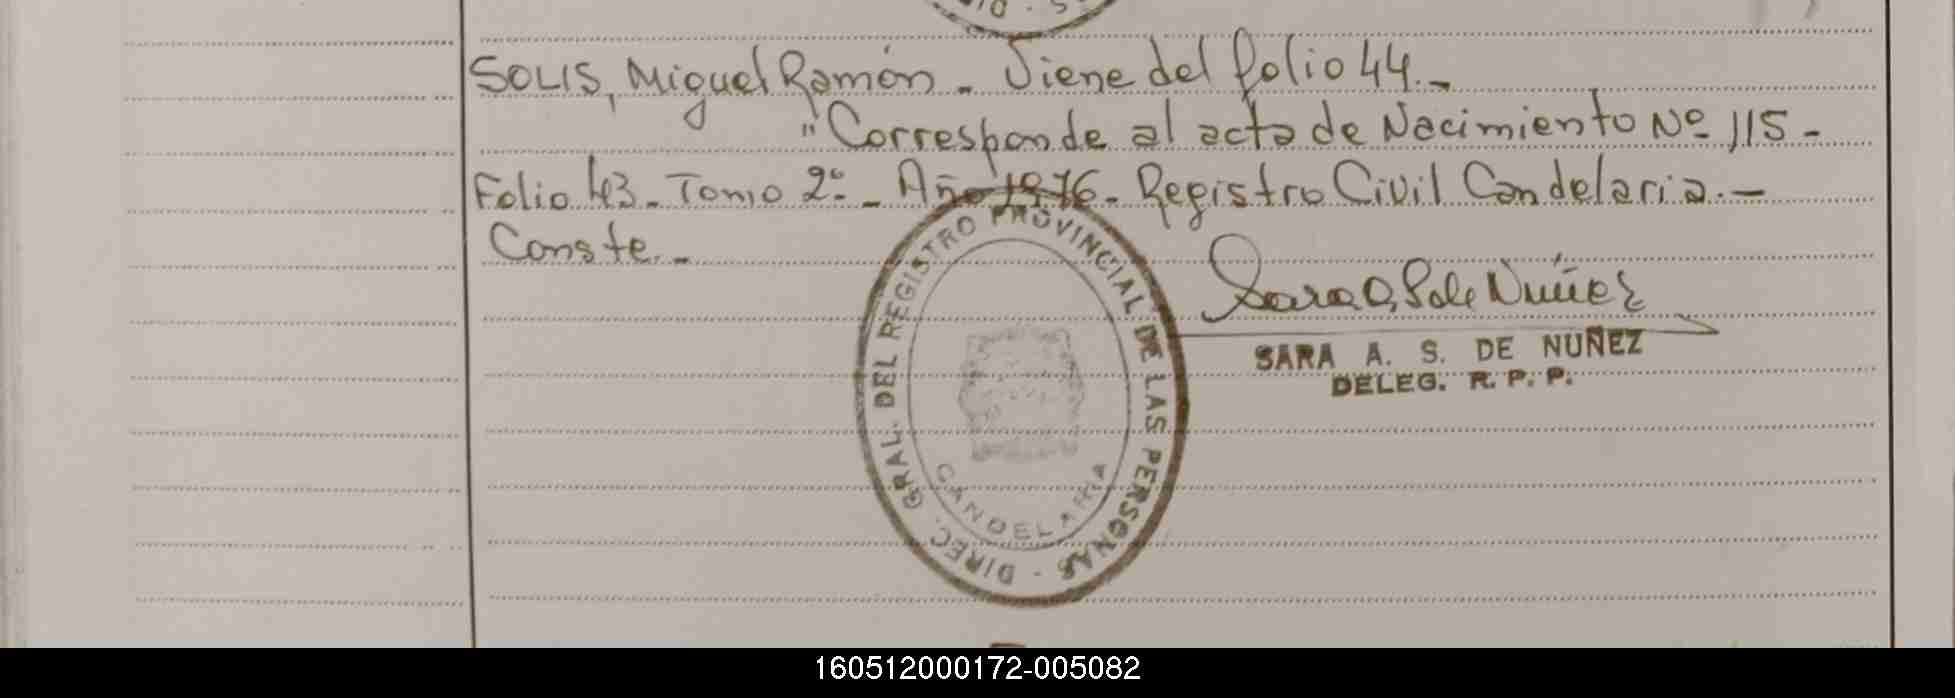 SOLIS, Miguel Ramón. Viene del folio 44.-
"Corresponde al acta de Nacimiento Nº 115-
Folio 43- Tomo 2º- Año 1976- Registro Civil Candelaria.-
Conste.-
Sara A. S. de Nuñez
SARA A. S. DE NUÑEZ
DELEG. R. P. P.
DIREC. GRAL. DEL REGISTRO PROVINCIAL DE LAS PERSONAS -
CANDELARIA
160512000172-005082